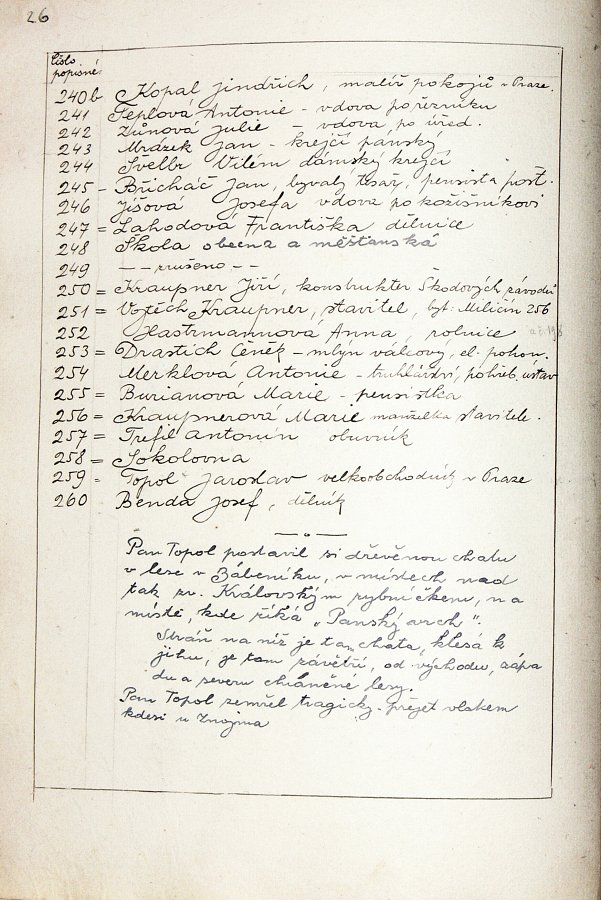 26
Číslo
popisné:
240b Kopal Jindřich, malíř pokojů v Praze.
241 Teplová Antonie - vdova po řezníku
242 Zůnová Julie - vdova po úřed.
243 Mrázek Jan - krejčí pánský
244 Švellbr Vilém dámský krejčí
245 - Břicháč Jan, bývalý tesař, pensista pošt.
246 Jíšová Josefa vdova po kožišníkovi
247 = Lahodová Františka dělnice
248 Škola obecná a měšťanská
249 - - zrušeno - -
250 = Kraupner Jiří, konstruktér Škodových závodů
251 = Vojtěch Kraupner, stavitel, byt: Miličín 256
252 Hastrmannová Anna, rolnice
253 = Drastich Čeněk - mlýn válcový, el. pohon.
254 Merklová Antonie - truhlářství, pohřeb. ústav
255 = Burianová Marie - pensistka
256 = Kraupnerová Marie manželka stavitele.
257 = Trefil Antonín obuvník
258 = Sokolovna
259 - Topol Jaroslav velkoobchodník v Praze
260 Benda Josef, dělník
Pan Topol postavil si dřevěnou chatu
v lese v Zábeníku, v místech nad
tak zv. Královským rybníčkem, na
místě, kde říká „Panský vrch".
Stráň na níž je ta chata, klesá k
jihu, je tam závětří, od východu, západu
du a severu chráněné lesy.
Pan Topol zemřel tragicky - přejet vlakem
kdesi u Znojma